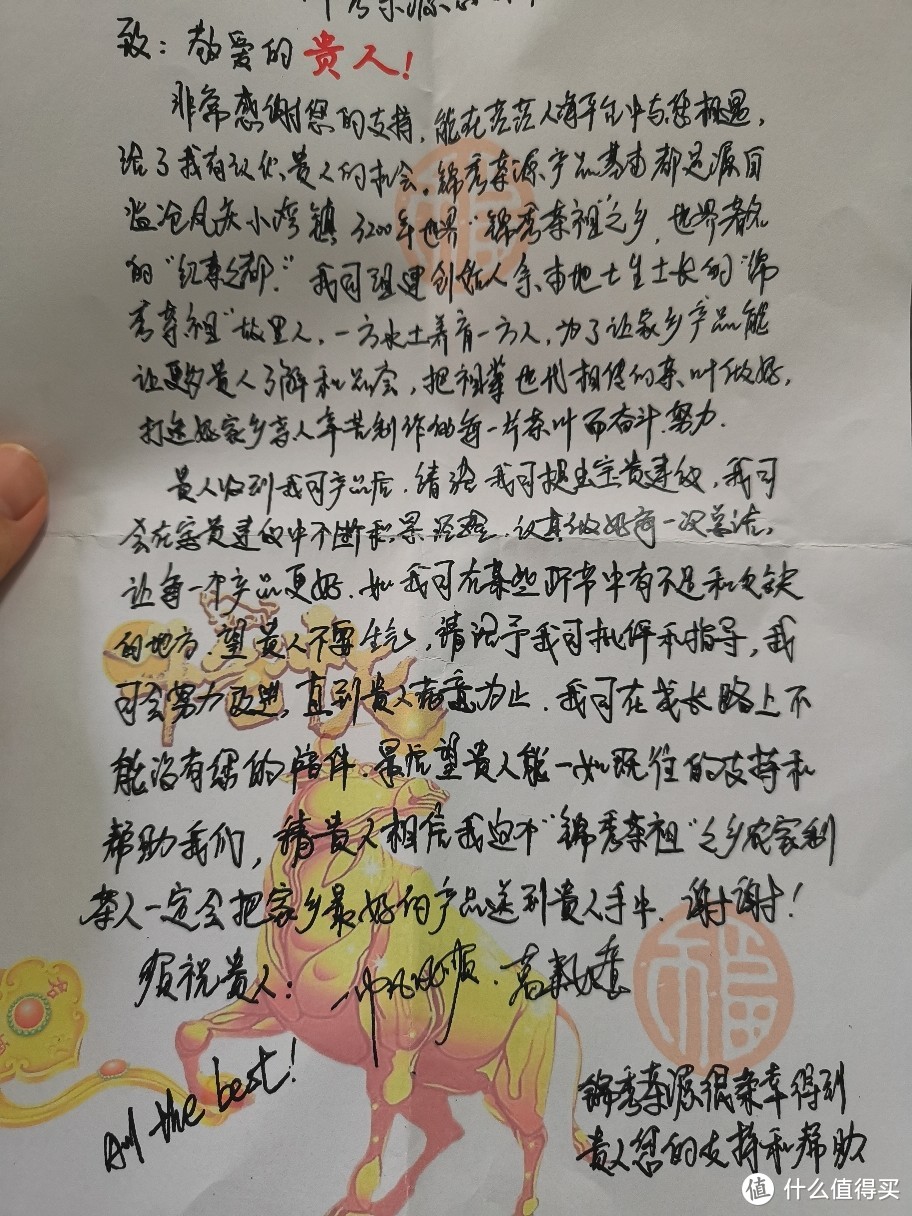 致：敬爱的贵人！
非常感谢您的支持，能在茫茫人海平台中与您相遇，
给了我有认识贵人的机会。锦秀茶源产品基由都是源自
临沧凤庆小湾镇3200年世界“锦秀茶祖”之乡，世界著名
的“红茶之都”。我司组建创始人系本地土生土长的“锦
秀茶祖”故里人，一方水土养育一方人，为了让家乡产品能
让更多贵人了解和品尝，把祖辈世代相传的茶叶做好，
打造好家乡亲人辛苦制作的每一片茶叶而奋斗.努力.
贵人收到我司产品后.请给我司提出宝贵建议，我司
会在宝贵建议中不断积累经验.认真做好每一次总结，
让每一个产品更好.如我司在某些环节中有不足和欠缺
的地方.望贵人不要生气，请给予我司批评和指导，我
司会努力改进，直到贵人满意为止.我司在成长路上不
能没有您的陪伴.最后望贵人能一如既往的支持和
帮助我们，请贵人相信我这个“锦秀茶祖”之乡农家制
茶人一定会把家乡最好的产品送到贵人手中.谢谢！
预祝贵人：一帆风顺.万事如意
All the best!
锦秀茶源很荣幸得到
贵人您的支持和帮助
福
福
值 什么值得买